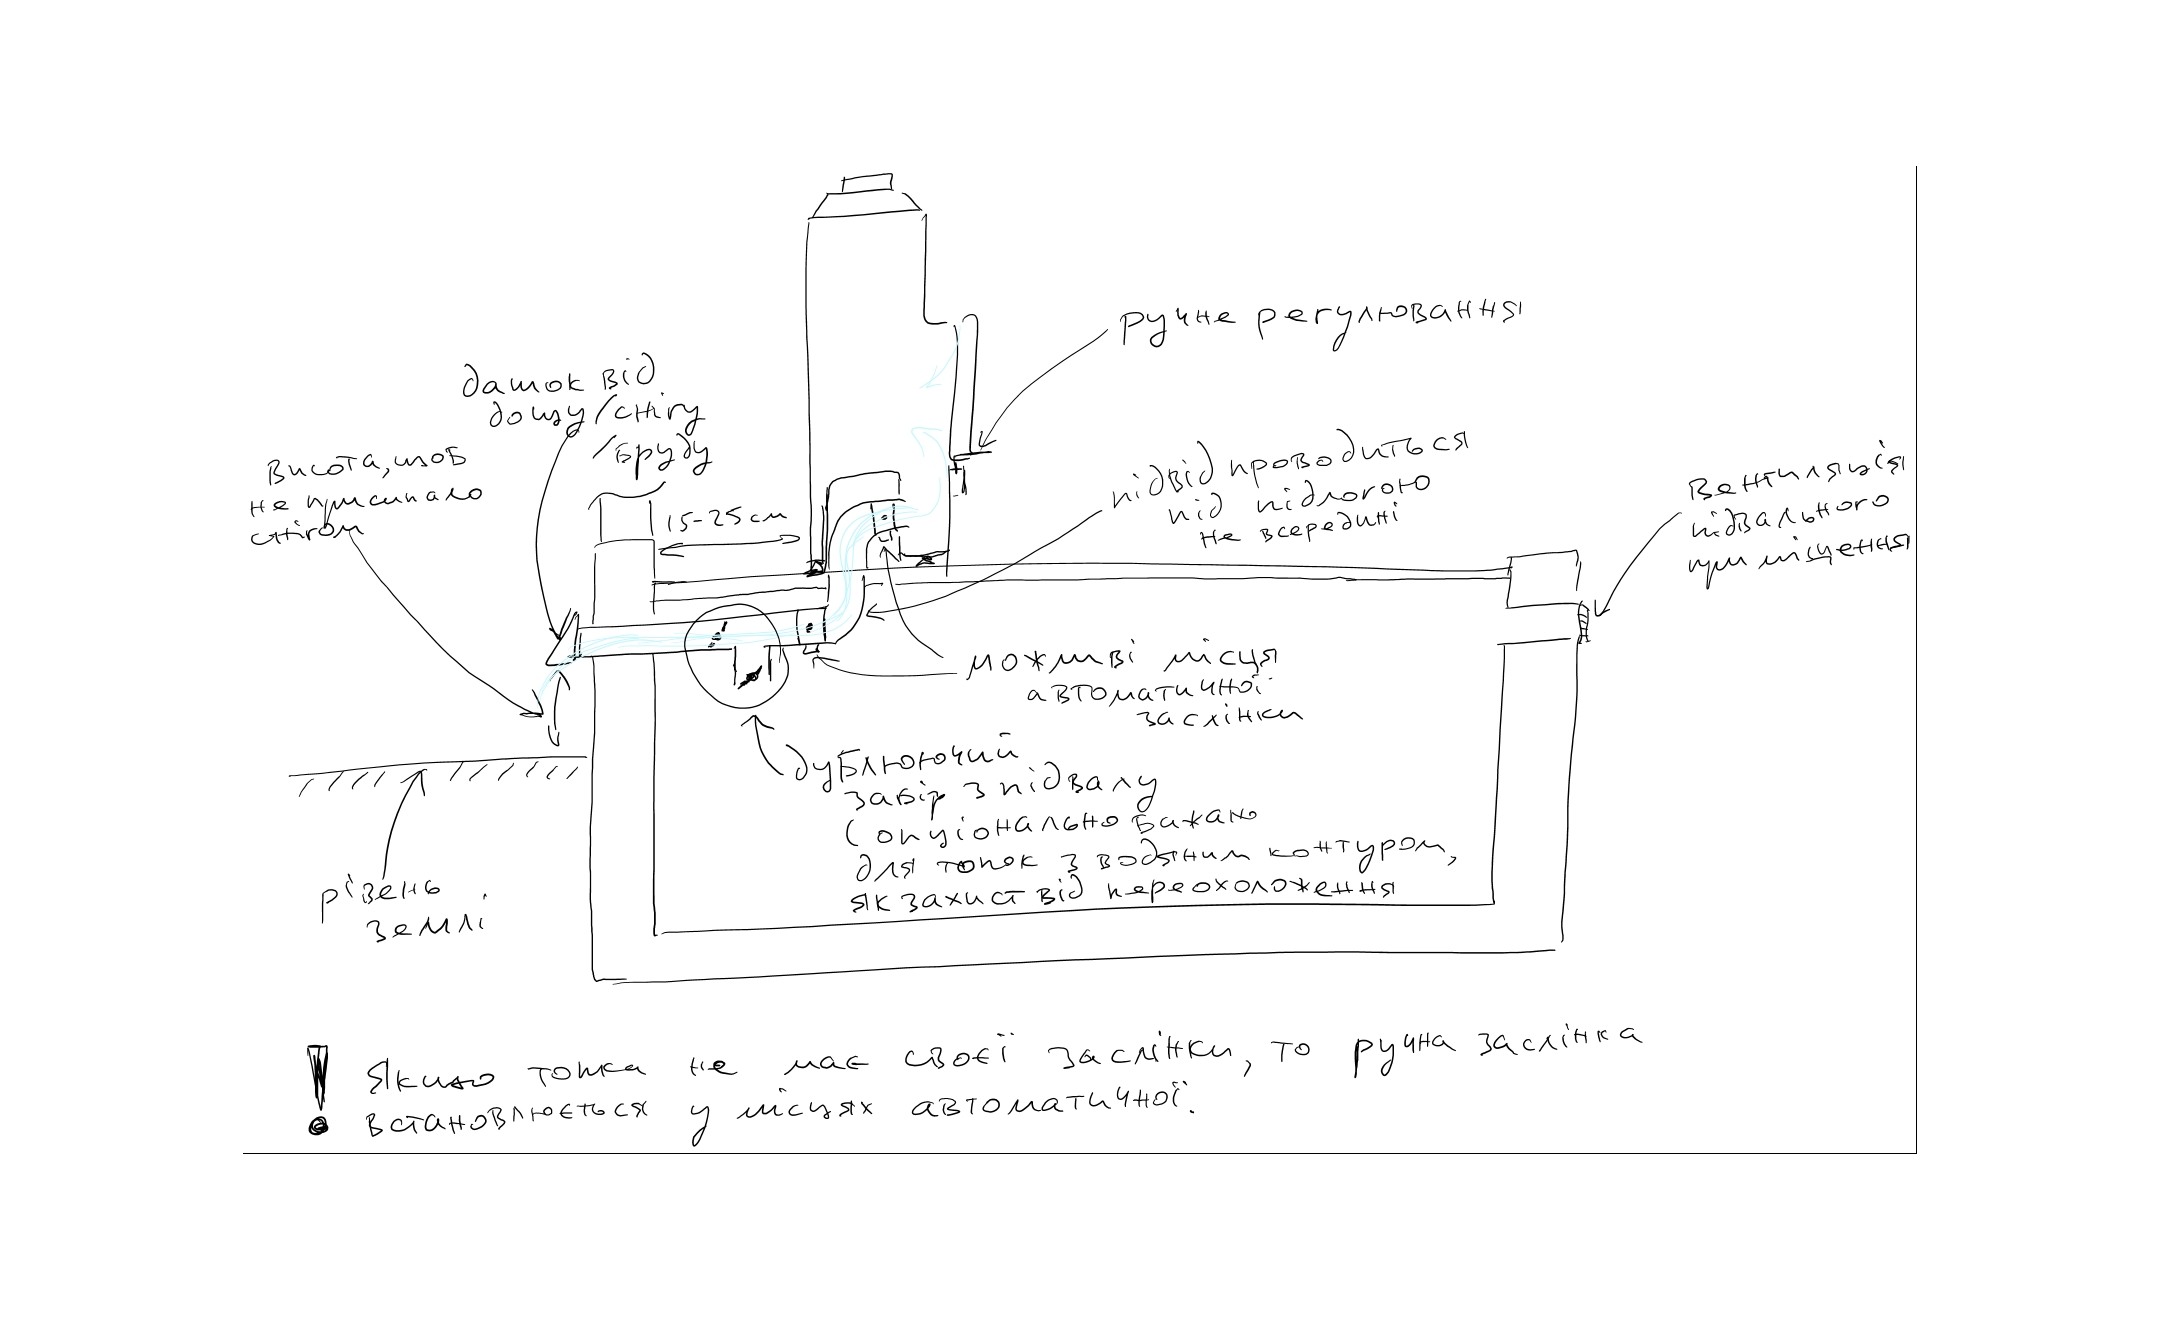 ручне регулювання
дашок від
дощу/снігу
/бруду
Висота, щоб
не присипало
снігом
15-25 см
підвід проводиться
під підлогою
не всередині
Вентиляція
підвального
приміщення
можливі місця
автоматичної
заслінки
дублюючий
забір з підвалу
(опціонально бажано
для топок з водяним контуром,
як захист від переохолодження
рівень
землі
! Якщо топка не має своєї заслінки, то ручна заслінка
встановлюється у місцях автоматичної.